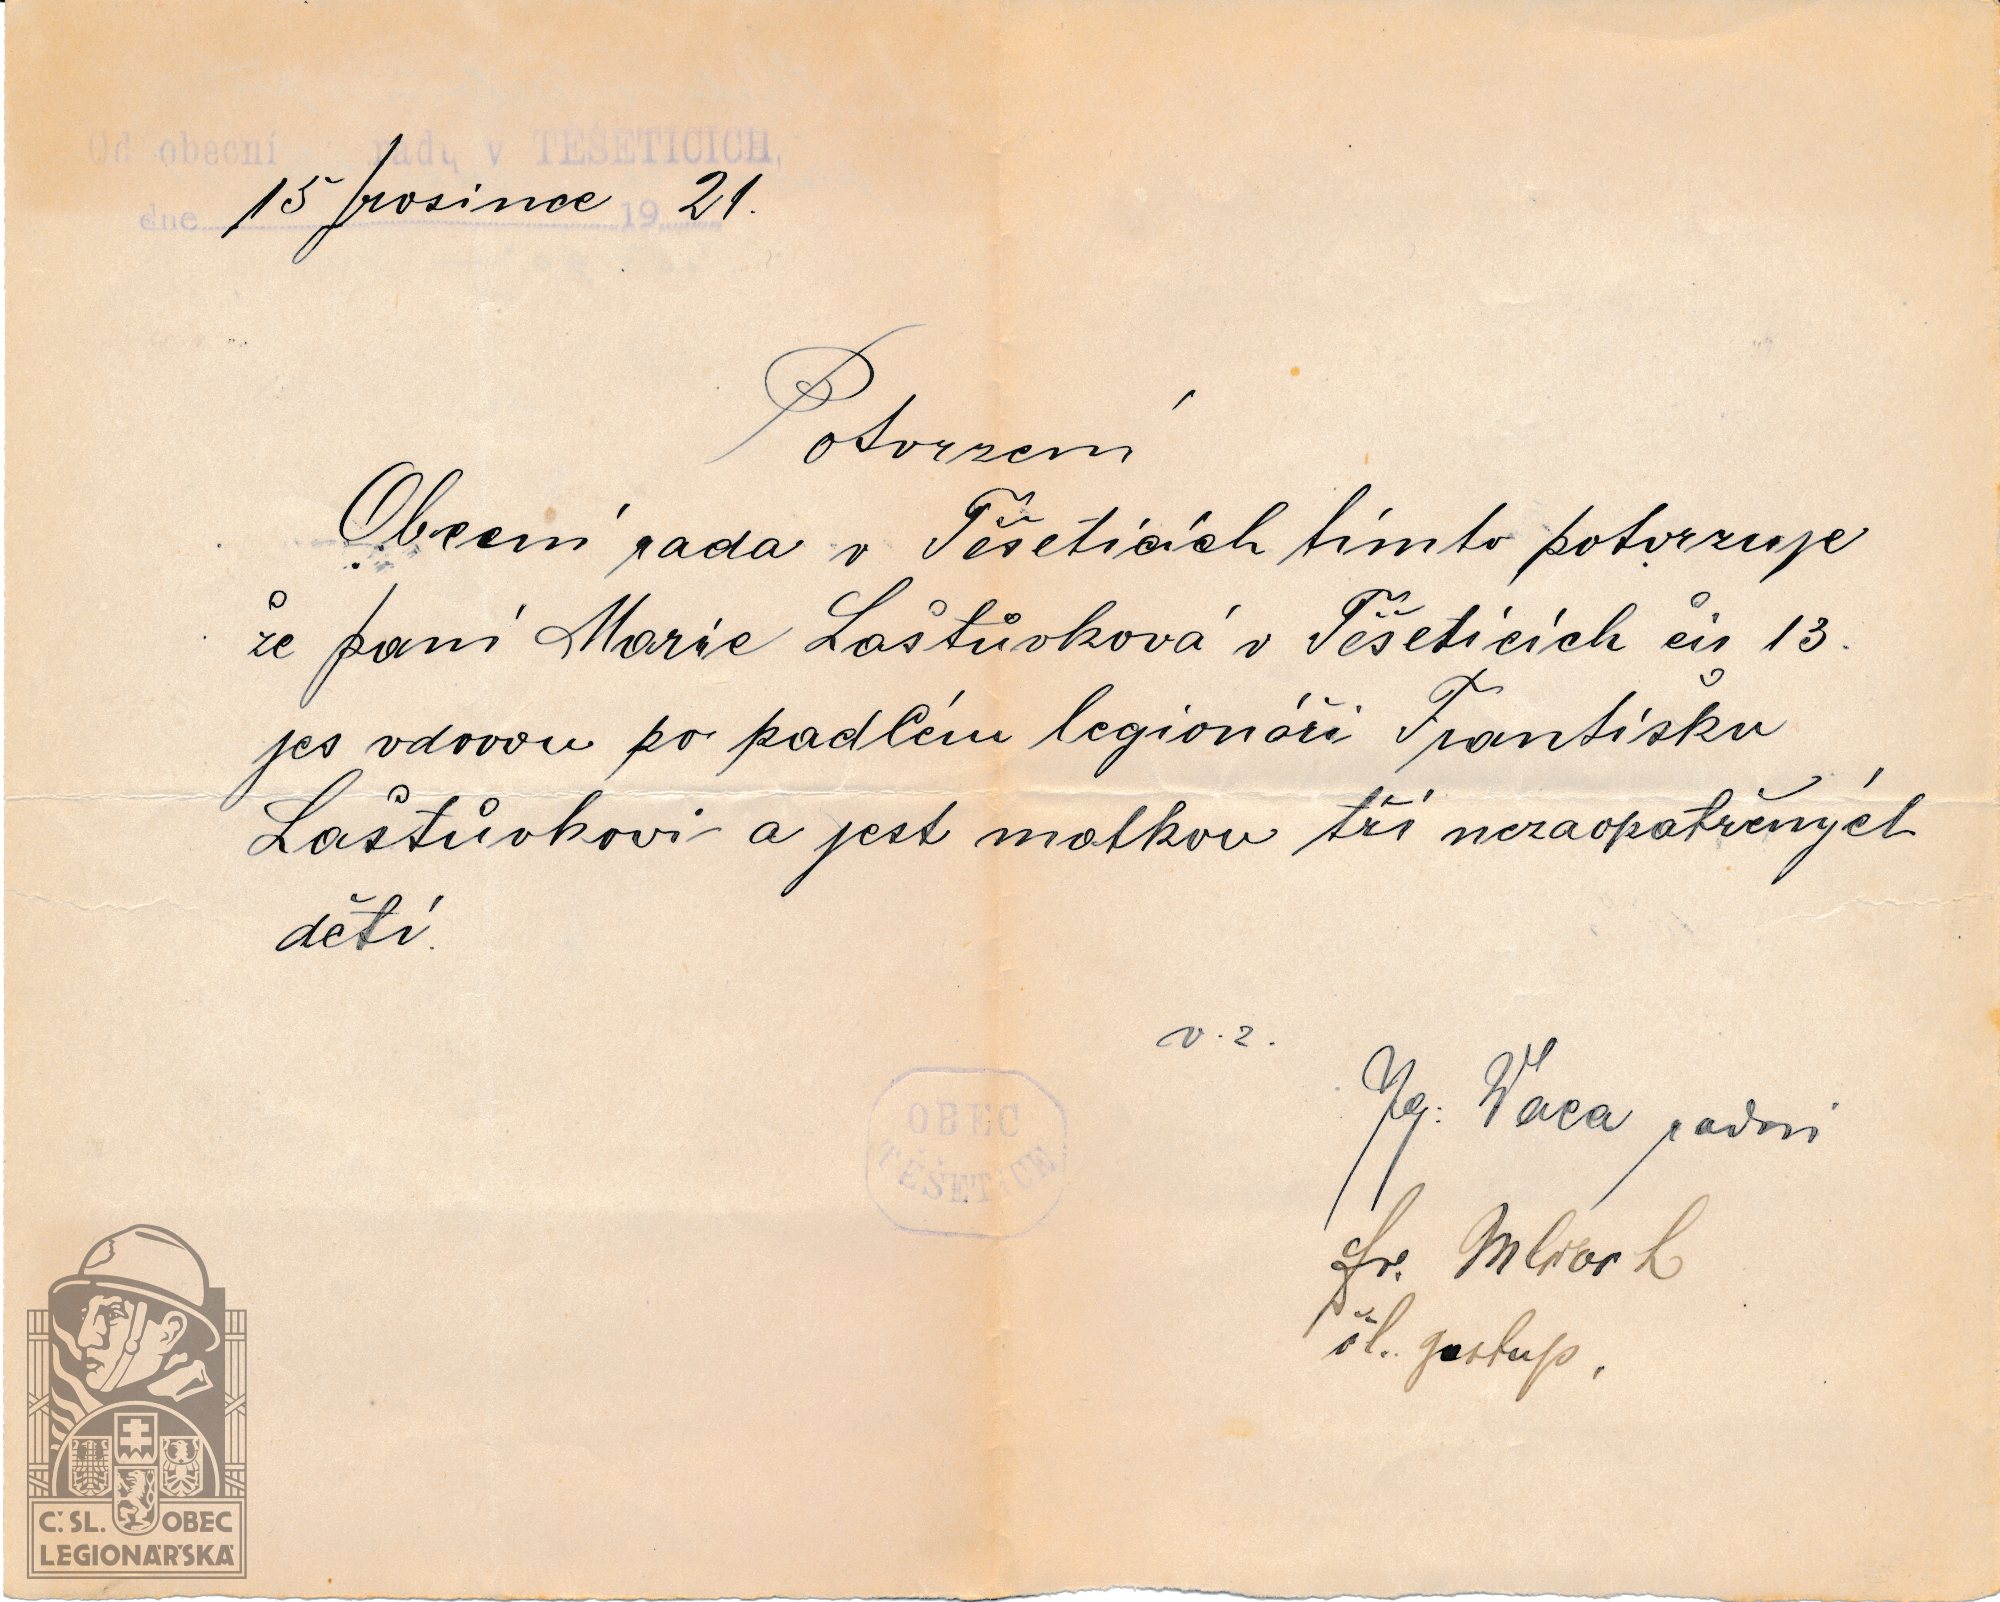 Od obecní rady v TĚŠETICÍCH,
dne 15 prosince 1921.
Potvrzení
Obecní rada v Těšeticích tímto potvrzuje
že paní Marie Laštůvková v Těšeticích čís 13.
jes vdovou po padlém legionáři Františku
Laštůvkovi a jest matkou tří nezaopatřených
dětí.
v. z.
Ig. Vaca radní
OBEC
TĚŠETICE
Fr.
čl. zastup.
Č.SL. OBEC
LEGIONÁŘSKÁ